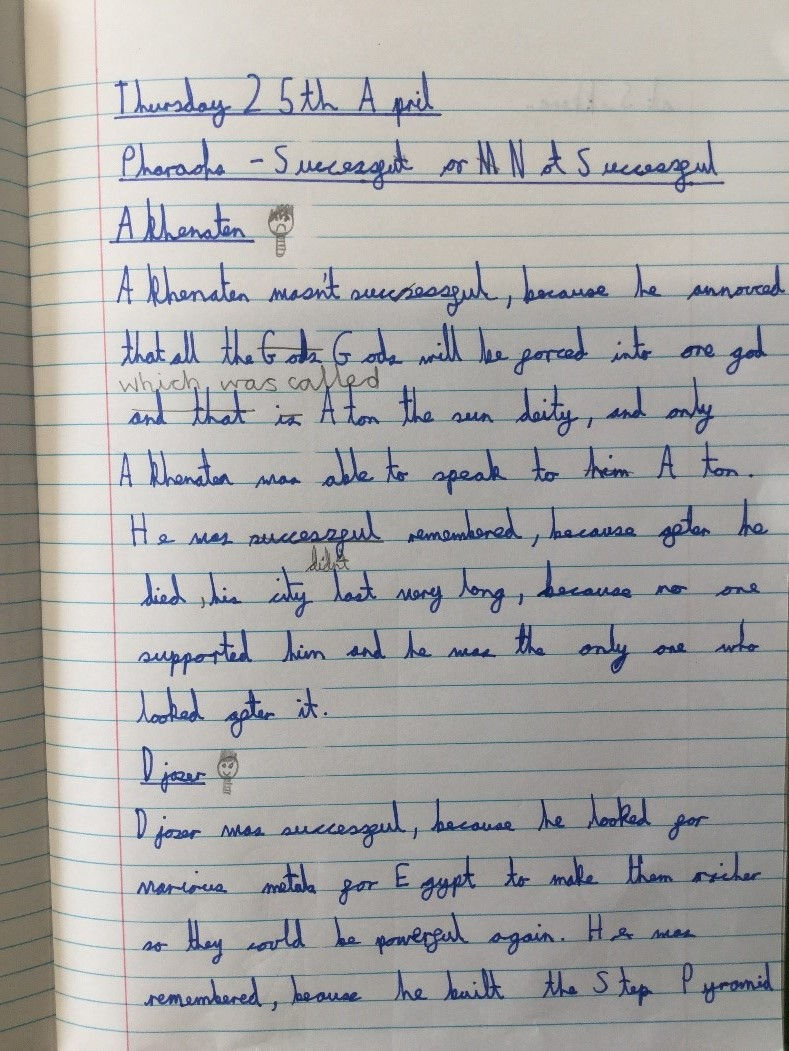 Thursday 25th April
Pharaohs - Successful or M Not Successful
Akhenaten
Akhenaten wasn't successful, because he annouced
that all the Gods Gods will be forced into one god
which was called
and that is Aton the sun deity, and only
Akhenaten was able to speak to him Aton.
He was successful remembered, because after he
didn't
died, his city last very long, because no one
supported him and he was the only one who
looked after it.
Djoser
Djoser was successful, because he looked for
various metals for Egypt to make them richer
so they could be powerful again. He was
remembered, beause he built the Step Pyramid